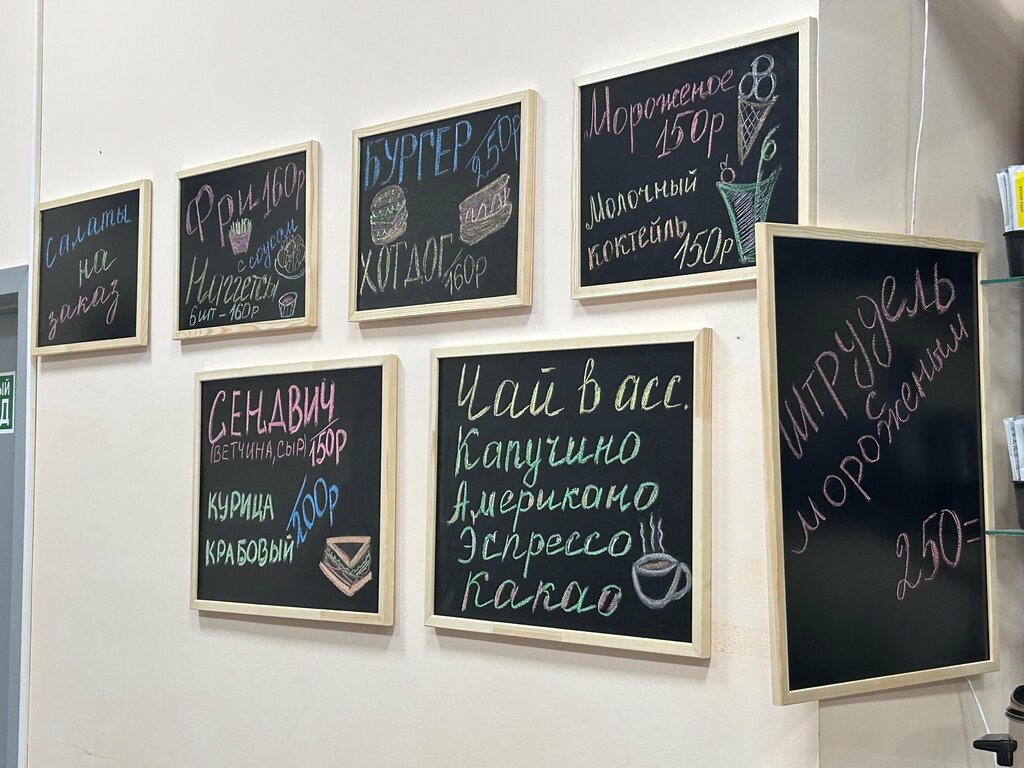 Салаты
на
заказ
Фри 160р
с соусом
Наггетсы
6шт-160р
БУРГЕР
ХОТДОГ 160р
Мороженое
150р
Молочный
коктейль 150р
СЕНДВИЧ
(ВЕТЧИНА, СЫР) 150р
КУРИЦА
200р
КРАБОВЫЙ
Чай в асс.
Капучино
Американо
Эспрессо
Какао
Штрудель
с
мороженым
250=